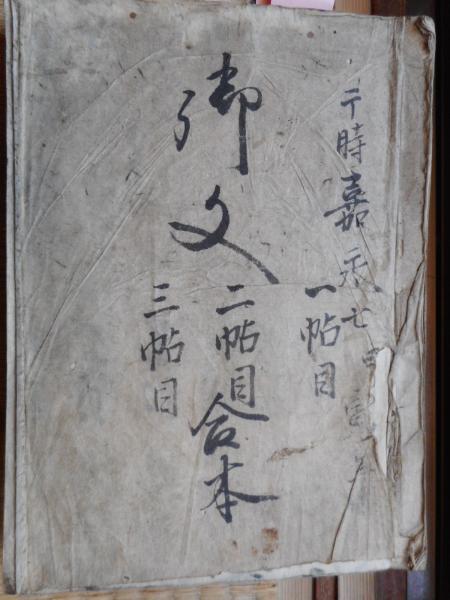 于時嘉永七甲寅年
御文
一帖目
二帖目合本
三帖目